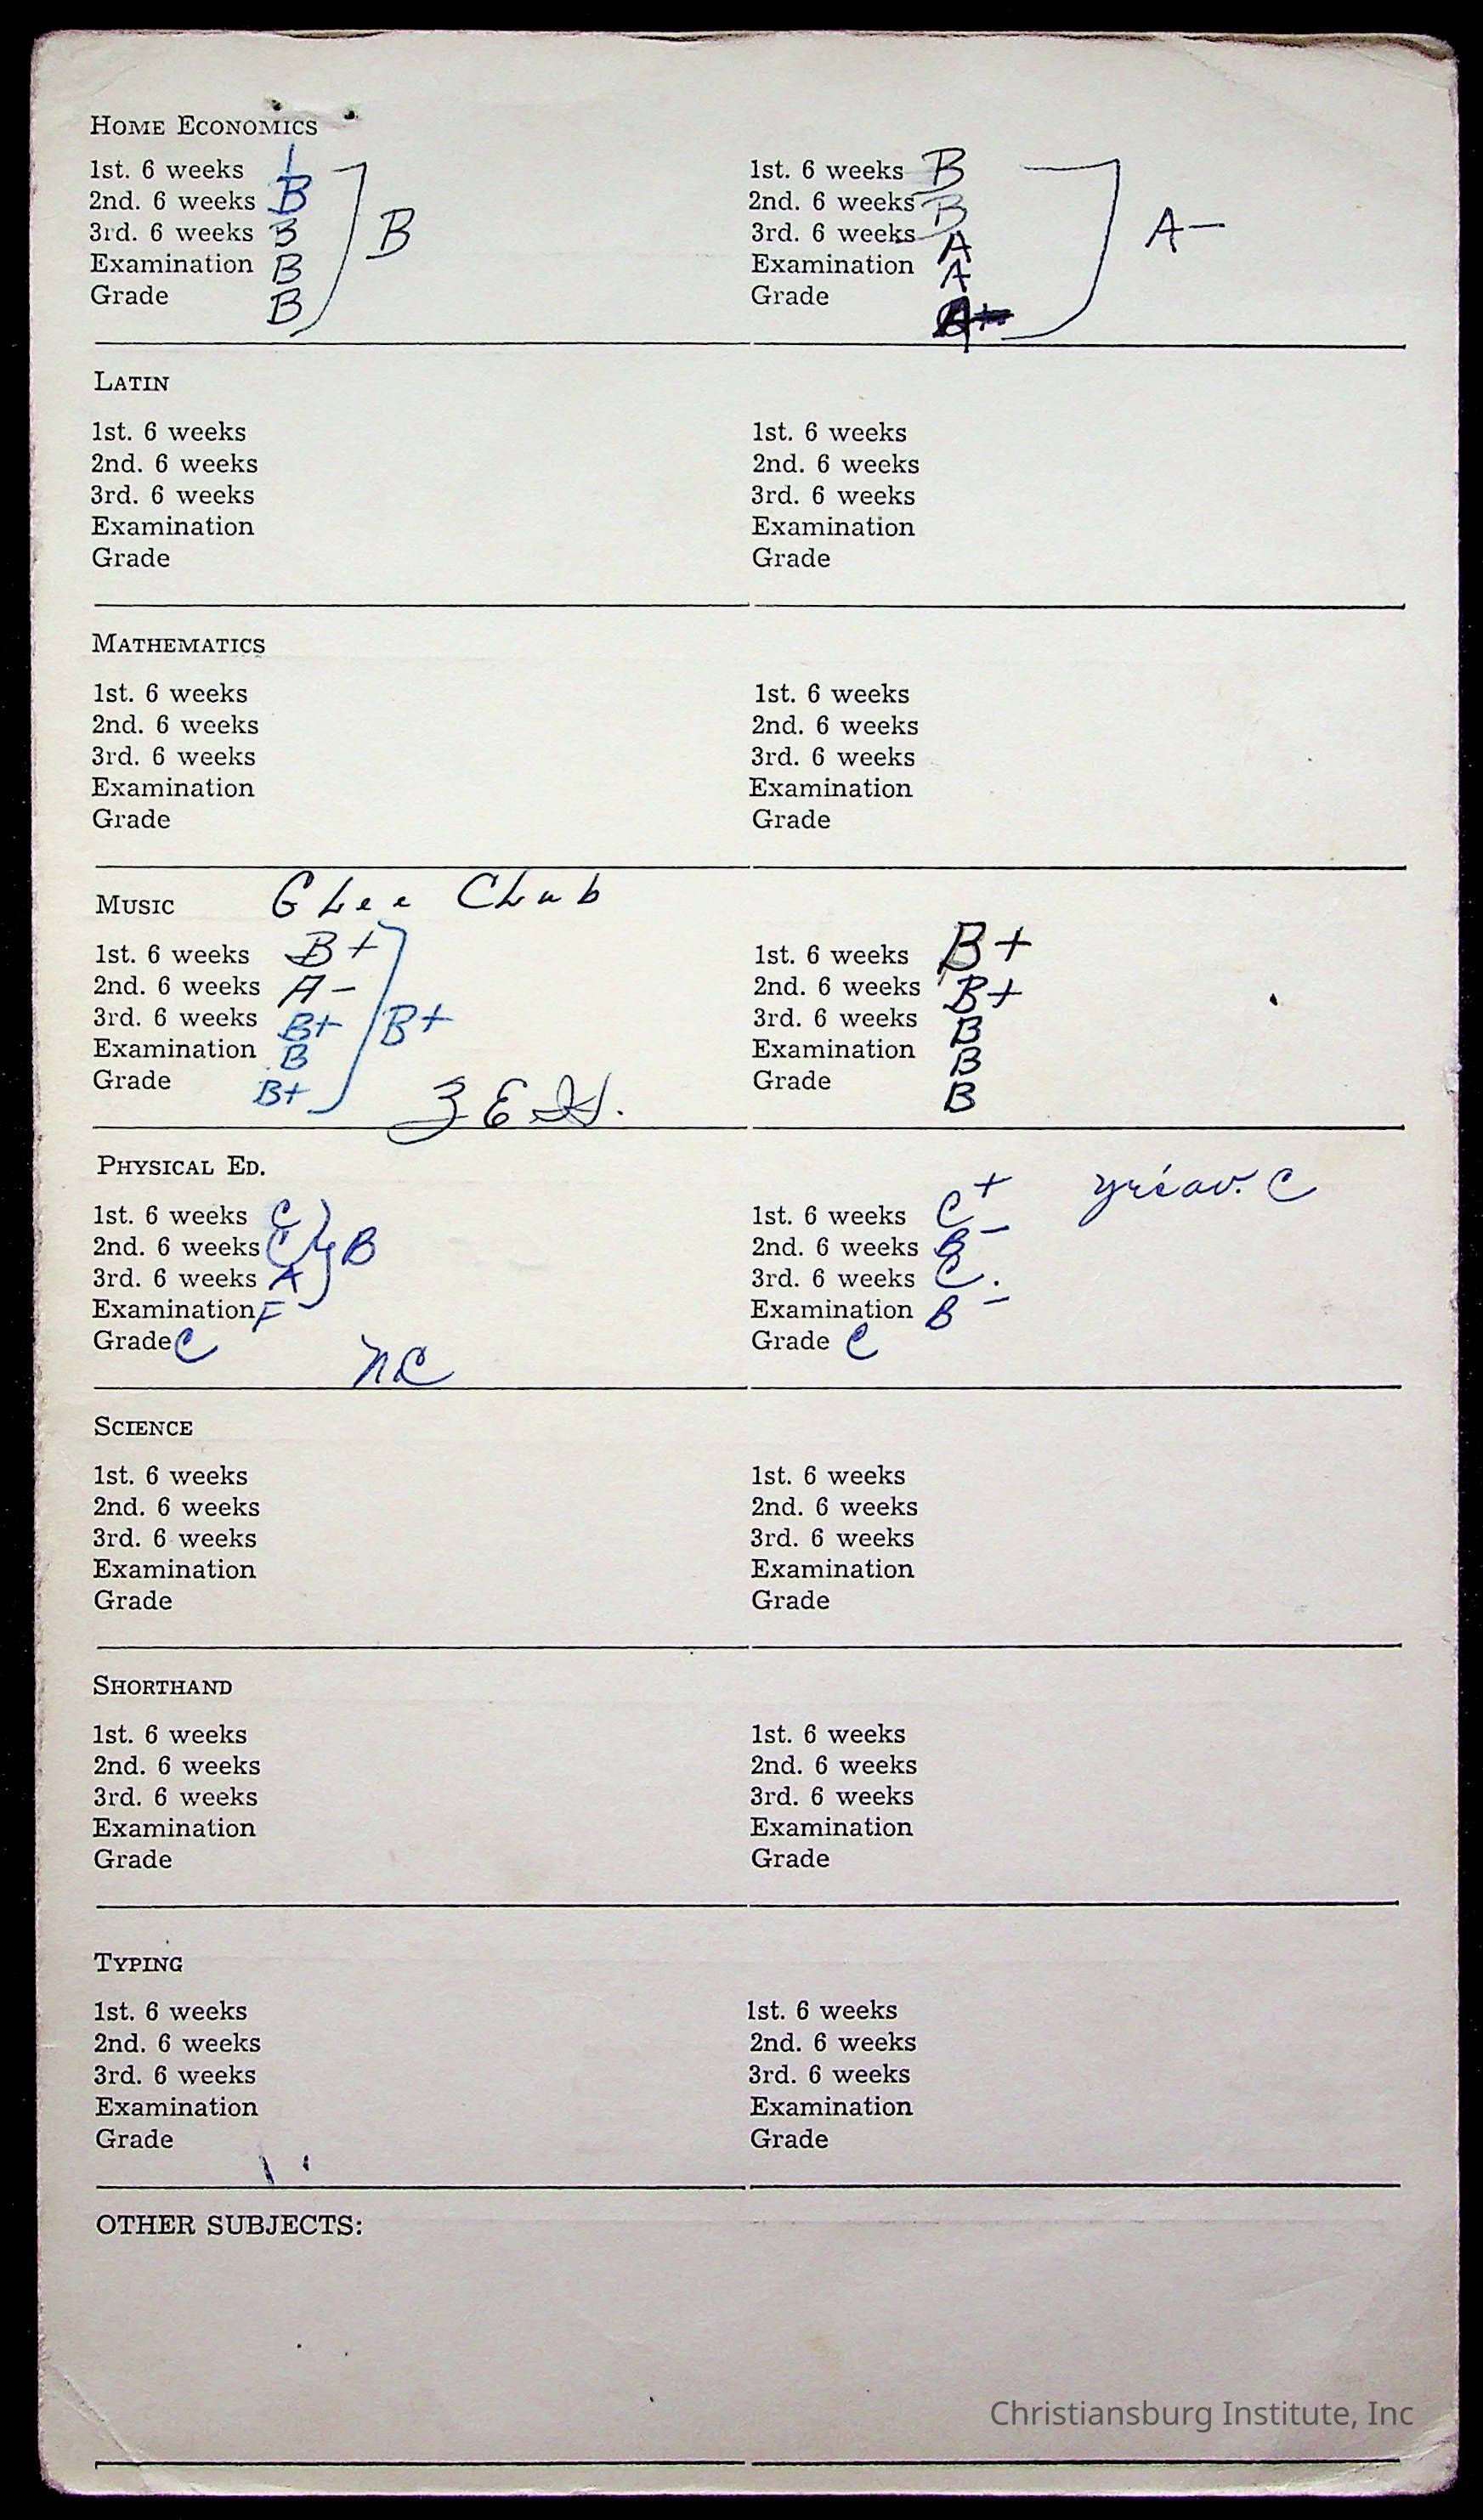 HOME ECONOMICS
1st. 6 weeks
2nd. 6 weeks B
3rd. 6 weeks B
Examination B
Grade B
B
1st. 6 weeks B
2nd. 6 weeks B
3rd. 6 weeks A
Examination A
Grade
A-
LATIN
1st. 6 weeks
2nd. 6 weeks
3rd. 6 weeks
Examination
Grade
1st. 6 weeks
2nd. 6 weeks
3rd. 6 weeks
Examination
Grade
MATHEMATICS
1st. 6 weeks
2nd. 6 weeks
3rd. 6 weeks
Examination
Grade
1st. 6 weeks
2nd. 6 weeks
3rd. 6 weeks
Examination
Grade
MUSIC Glee Club
1st. 6 weeks B+
2nd. 6 weeks A-
3rd. 6 weeks B+
Examination B
Grade B+
B+
1st. 6 weeks B+
2nd. 6 weeks B+
3rd. 6 weeks B
Examination B
Grade B
PHYSICAL ED.
1st. 6 weeks C
2nd. 6 weeks C
3rd. 6 weeks A
Examination F
Grade C
B
NC
1st. 6 weeks C+
2nd. 6 weeks B-
3rd. 6 weeks C.
Examination B-
Grade C
av. C
SCIENCE
1st. 6 weeks
2nd. 6 weeks
3rd. 6 weeks
Examination
Grade
1st. 6 weeks
2nd. 6 weeks
3rd. 6 weeks
Examination
Grade
SHORTHAND
1st. 6 weeks
2nd. 6 weeks
3rd. 6 weeks
Examination
Grade
1st. 6 weeks
2nd. 6 weeks
3rd. 6 weeks
Examination
Grade
TYPING
1st. 6 weeks
2nd. 6 weeks
3rd. 6 weeks
Examination
Grade
1st. 6 weeks
2nd. 6 weeks
3rd. 6 weeks
Examination
Grade
OTHER SUBJECTS:
Christiansburg Institute, Inc